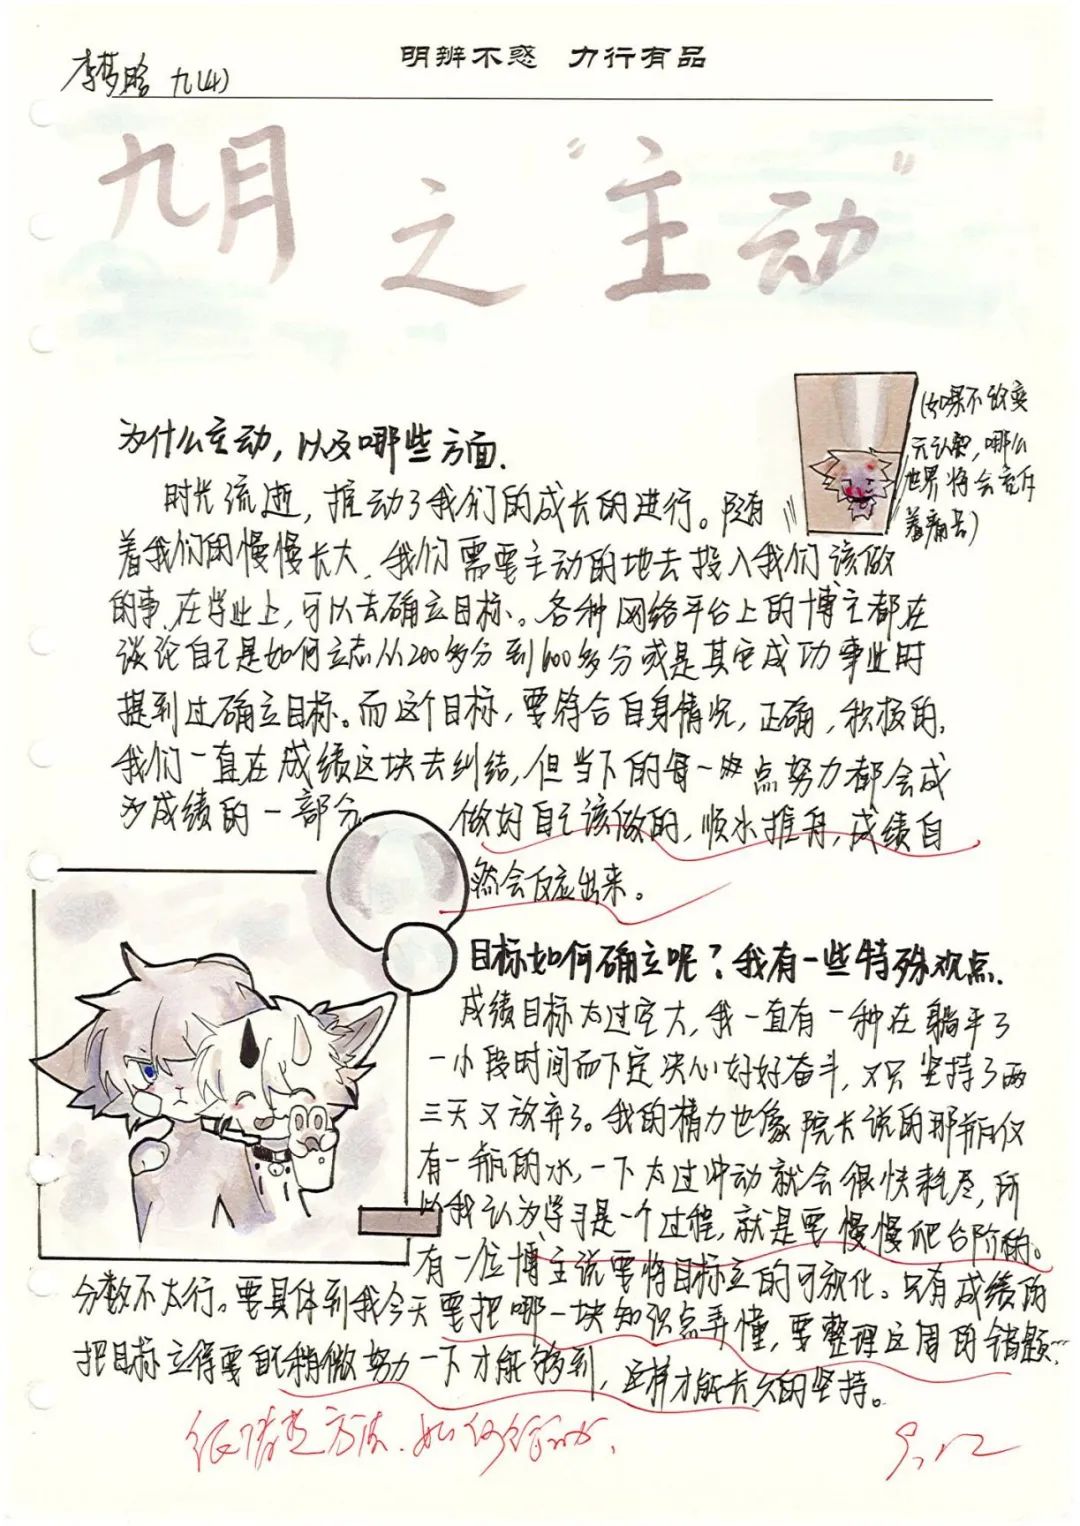 明辨不惑 力行有品
李梦晗 九(4)
九月之“主动”
为什么主动，以及哪些方面.
(如果不改变
无认知，哪么
世界将会充斥
着痛苦)
时光流逝，推动了我们的成长的进行。随有
着我们的慢慢长大，我们需要主动的地去投入我们该做
的事.在学业上，可以去确立目标。各种网络平台上的博主都在
谈论自己是如何立志从200多分到600多分或是其它成功事业时
提到过确立目标。而这个目标，要符合自身情况，正确，积极的.
我们一直在成绩这块去纠结，但当下的每一点努力都会成
为成绩的一部分
做好自己该做的，顺水推舟，成绩自
然会反应出来。
目标如何确立呢？我有一些特殊观点.
成绩目标太过空大，我一直有一种在躺平了
一小段时间而下定决心好好奋斗，又只坚持了两
三天又放弃了。我的精力也像院长说的那瓶仅
有一瓶的水，一下太过冲动就会很快耗尽，所
以我认为学习是一个过程，就是要慢慢爬台阶的。
有一位博主说要将目标立的可放化。只有成绩的
分数不太行。要具体到我今天要把哪一块知识点弄懂，要整理这周的错题…
把目标立得要自己稍微努力一下才能够到，这样才能长久的坚持。
9.12